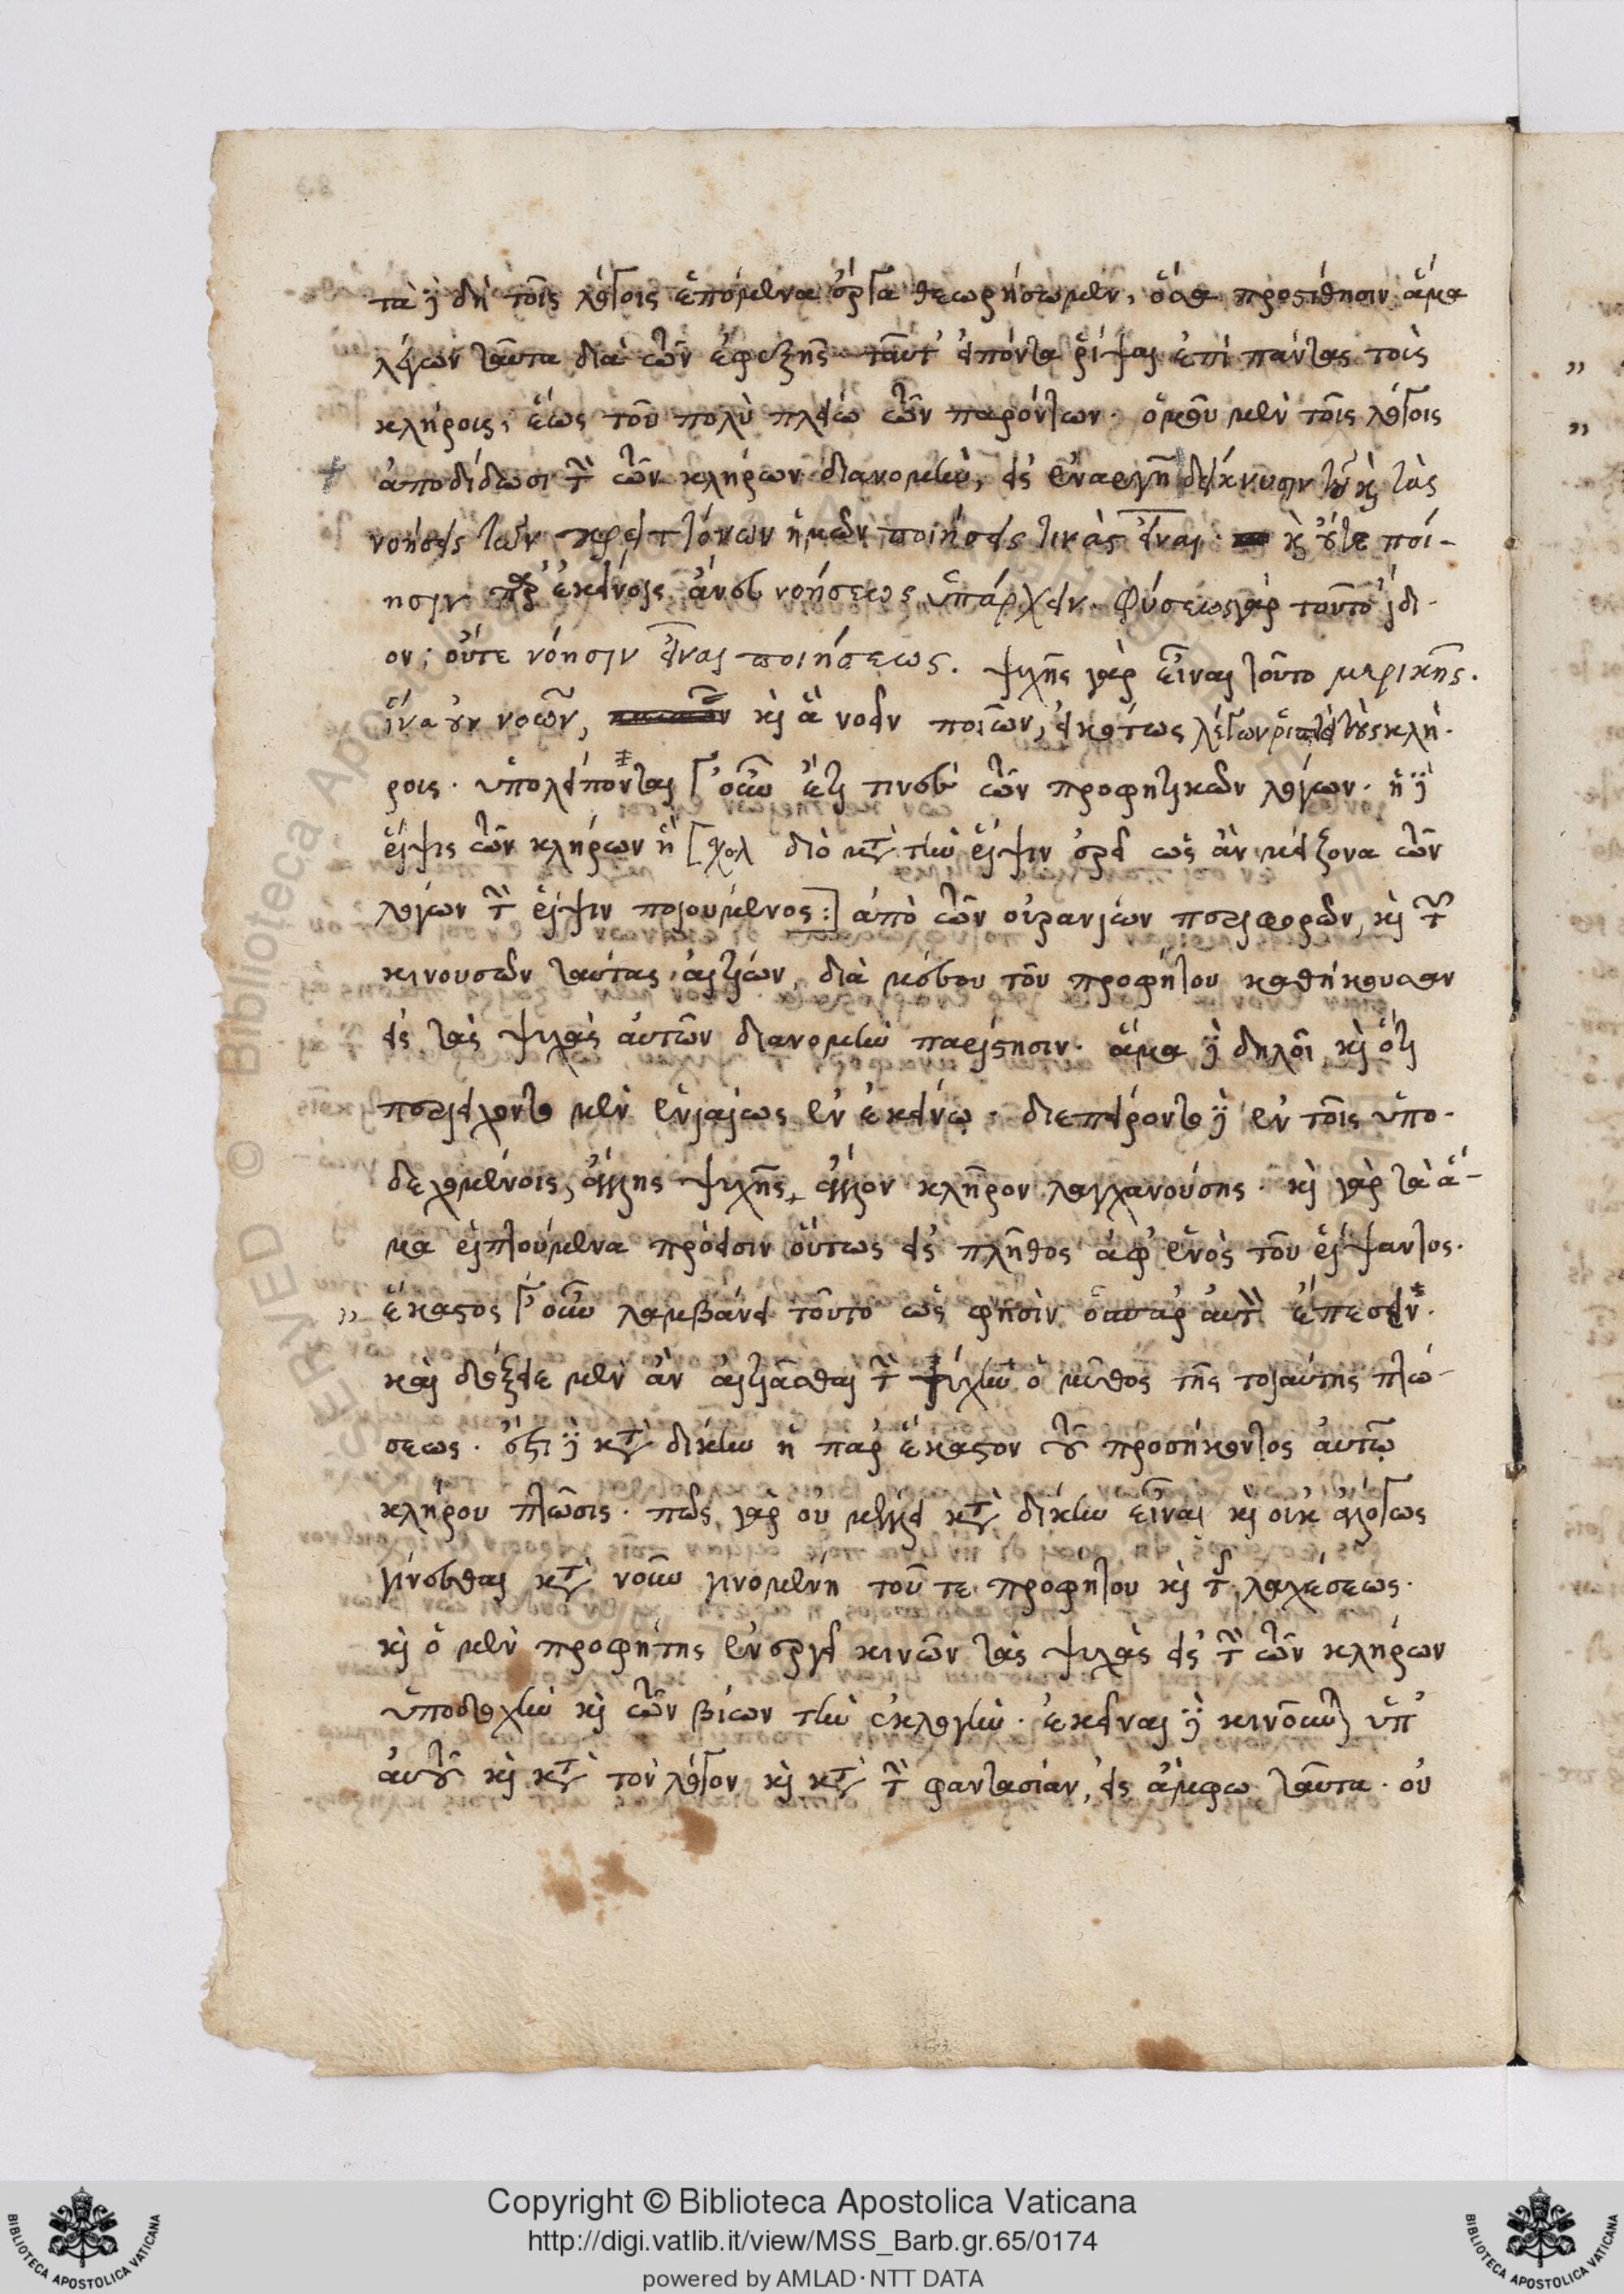 τὰ δὲ δὴ τοῖς λόγοις ἑπόμενα ἔργα θεωρήσωμεν, ὅσα προστίθησιν ἅμα
λέγων ταῦτα διὰ τῶν ἐφεξῆς ταῦτ' εἰπόντα ῥίψαι ἐπὶ πάντας τοὺς
κλήρους, ἕως τοῦ πολὺ πλείω τῶν παρόντων. ὁμοῦ μὲν τοῖς λόγοις
ἀποδίδωσι τὴν τῶν κλήρων διανομὴν, εἰς ἐναργῆ δείκνυσιν τοῦ καὶ τὰς
νοήσεις τῶν κρειττόνων ἡμῶν ποιήσεις τικὰς εἶναι. καὶ οὔτε ποί-
ησιν παρ' ἐκείνοις ἄνευ νοήσεως ὑπάρχειν. φύσεως γὰρ τοῦτο ἴδι-
ον; οὔτε νόησιν εἶναι ποιήσεως. ψυχῆς γὰρ εἶναι τοῦτο μερικῆς.
ἵνα οὖν νοῶν, καὶ ἃ νοεῖν ποιῶν, εἰκότως λέγων ῥίπτει τοὺς κλή-
ρους. ὑπολείπονται ἔτι τῶν προφητικῶν λόγων. ἡ δὲ
ῥίψις τῶν κλήρων ἢ [σχολ διὸ μετὰ τὴν ῥίψιν ὡς ἂν μείζονα τῶν
λόγων τὴν ῥίψιν ποιούμενος:] ἀπὸ τῶν οὐρανίων περιφορῶν, καὶ τῶν
κινουσῶν ταύτας αἰτιῶν, διὰ μέσου τοῦ προφήτου καθήκουσαν
εἰς τὰς ψυχὰς αὐτῶν διανομὴν παρίστησιν. ἅμα δὲ δηλοῖ καὶ ὅτι
περιείχοντο μὲν ἑνιαίως ἐν ἐκείνῳ. διεπείροντο δὲ ἐν τοῖς ὑπο-
δεχομένοις, ἄλλης ψυχῆς, ἄλλον κλῆρον λαγχανούσης. καὶ γὰρ τὰ ἅ-
μα ῥιπτούμενα πρόεισιν οὕτως εἰς πλῆθος ἀφ' ἑνὸς τοῦ ῥίψαντος.
" ἕκαστος λαμβάνει τοῦτο ὥς φησὶν ὃ παρ' αὐτὸν ἔπεσεν.
καὶ διέξδε μὲν ἂν αἰτιᾶσθαι τὴν ψυχὴν ὁ μῦθος τῆς τοιαύτης πτώ-
σεως. ἔστι δὲ κατὰ δίκην ἡ παρ' ἕκαστον τοῦ προσήκοντος αὐτῷ
κλήρου πτῶσις. πῶς γὰρ οὐ μέλλει κατὰ δίκην εἶναι καὶ οὐκ ἀλόγως
γίνεσθαι κατὰ νοῦν γινομένη τοῦ τε προφήτου καὶ τῆς λαχέσεως.
καὶ ὁ μὲν προφήτης ἐνεργεῖ κινῶν τὰς ψυχὰς εἰς τὴν τῶν κλήρων
ὑποδοχὴν καὶ τῶν βίων τὴν ἐκλογήν. ἐκεῖναι δὲ κινοῦνται ὑπ'
αὐτοῦ καὶ κατὰ τὸν λόγον καὶ κατὰ τὴν φαντασίαν, εἰς ἄμφω ταῦτα. οὐ
Copyright © Biblioteca Apostolica Vaticana
http://digi.vatlib.it/view/MSS_Barb.gr.65/0174
powered by AMLAD·NTT DATA
BIBLIOTECA APOSTOLICA VATICANA
BIBLIOTECA APOSTOLICA VATICANA